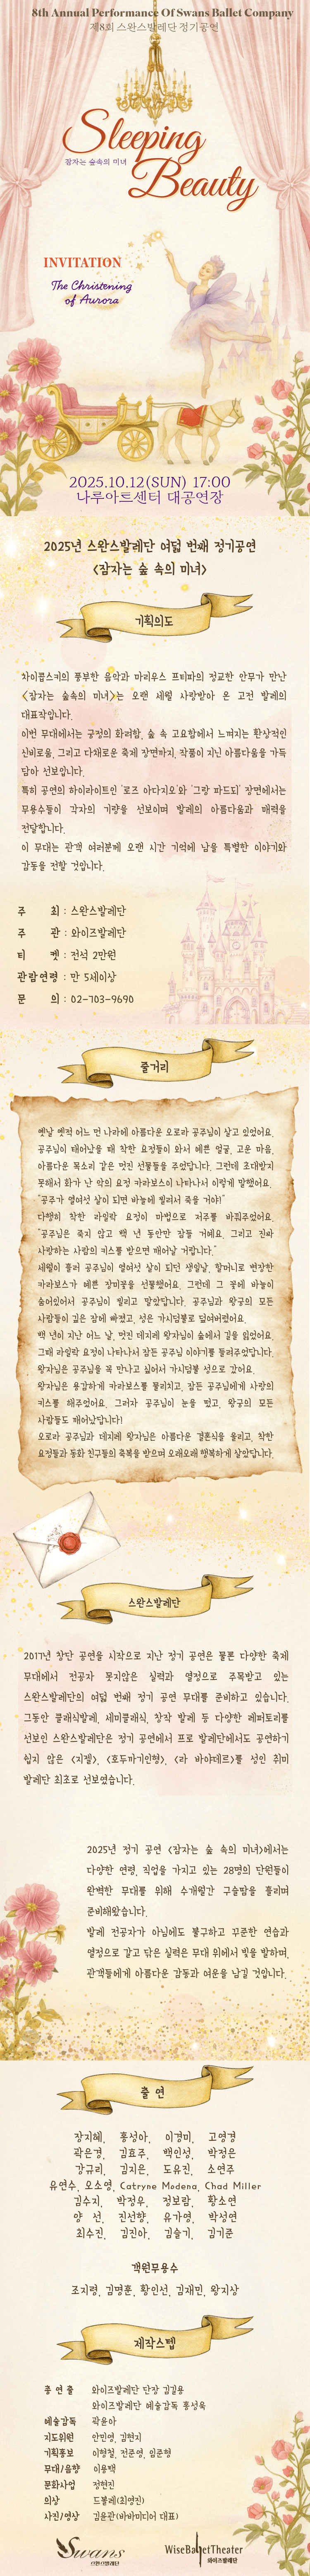 8th Annual Performance Of Swans Ballet Company
제8회 스완스발레단 정기공연
Sleeping
잠자는 숲속의 미녀
Beauty
INVITATION
The Christening
of Aurora
2025.10.12(SUN) 17:00
나루아트센터 대공연장
2025년 스완스발레단 여덟 번째 정기공연
<잠자는 숲 속의 미녀>
기획의도
차이콥스키의 풍부한 음악과 마리우스 프티파의 정교한 안무가 만난
<잠자는 숲속의 미녀>는 오랜 세월 사랑받아 온 고전 발레의
대표작입니다.
이번 무대에서는 궁정의 화려함, 숲 속 고요함에서 느껴지는 환상적인
신비로움, 그리고 다채로운 축제 장면까지, 작품이 지닌 아름다움을 가득
담아 선보입니다.
특히 공연의 하이라이트인 '로즈 아다지오'와 '그랑 파드되' 장면에서는
무용수들이 각자의 기량을 선보이며 발레의 아름다움과 매력을
전달합니다.
이 무대는 관객 여러분께 오랜 시간 기억에 남을 특별한 이야기와
감동을 전할 것입니다.
주 최 : 스완스발레단
주 관 : 와이즈발레단
티 켓 : 전석 2만원
관람연령 : 만 5세이상
문 의 : 02-703-9690
줄거리
옛날 옛적 어느 먼 나라에 아름다운 오로라 공주님이 살고 있었어요.
공주님이 태어났을 때 착한 요정들이 와서 예쁜 얼굴, 고운 마음,
아름다운 목소리 같은 멋진 선물들을 주었답니다. 그런데 초대받지
못해서 화가 난 악의 요정 카라보스가 나타나서 이렇게 말했어요.
"공주가 열여섯 살이 되면 바늘에 찔려서 죽을 거야!"
다행히 착한 라일락 요정이 마법으로 저주를 바꿔주었어요.
"공주님은 죽지 않고 백 년 동안만 잠들 거예요. 그리고 진짜
사랑하는 사람의 키스를 받으면 깨어날 거랍니다."
세월이 흘러 공주님이 열여섯 살이 되던 생일날, 할머니로 변장한
카라보스가 예쁜 장미꽃을 선물했어요. 그런데 그 꽃에 바늘이
숨어있어서 공주님이 찔리고 말았답니다. 공주님과 왕궁의 모든
사람들이 깊은 잠에 빠졌고, 성은 가시덤불로 덮여버렸어요.
백 년이 지난 어느 날, 멋진 데지레 왕자님이 숲에서 길을 잃었어요.
그때 라일락 요정이 나타나서 잠든 공주님 이야기를 들려주었답니다.
왕자님은 공주님을 꼭 만나고 싶어서 가시덤불 성으로 갔어요.
왕자님은 용감하게 카라보스를 물리치고, 잠든 공주님에게 사랑의
키스를 해주었어요. 그러자 공주님이 눈을 떴고, 왕궁의 모든
사람들도 깨어났답니다!
오로라 공주님과 데지레 왕자님은 아름다운 결혼식을 올리고, 착한
요정들과 동화 친구들의 축복을 받으며 오래오래 행복하게 살았답니다.
스완스발레단
2017년 창단 공연을 시작으로 지난 정기 공연은 물론 다양한 축제
무대에서 전공자 못지않은 실력과 열정으로 주목받고 있는
스완스발레단의 여덟 번째 정기 공연 무대를 준비하고 있습니다.
그동안 클래식발레, 세미클래식, 창작 발레 등 다양한 레퍼토리를
선보인 스완스발레단은 정기 공연에서 프로 발레단에서도 공연하기
쉽지 않은 <지젤>, <호두까기인형>, <라 바야데르>를 성인 취미
발레단 최초로 선보였습니다.
2025년 정기 공연 <잠자는 숲 속의 미녀>에서는
다양한 연령, 직업을 가지고 있는 28명의 단원들이
완벽한 무대를 위해 수개월간 구슬땀을 흘리며
준비해왔습니다.
발레 전공자가 아님에도 불구하고 꾸준한 연습과
열정으로 갈고 닦은 실력은 무대 위에서 빛을 발하며,
관객들에게 아름다운 감동과 여운을 남길 것입니다.
출 연
장지혜, 홍성아, 이경미, 고영경
곽은경, 김효주, 백인성, 박정은
강규리, 김지은, 도유진, 소연주
유연수, 오소영, Catryne Modena, Chad Miller
김수지, 박정우, 정보람, 황소연
양 선, 진선향, 유가영, 박성연
최수진, 김진아, 김슬기, 김기준
객원무용수
조지령, 김명훈, 황인선, 김재민, 왕지상
제작스텝
총 연 출 와이즈발레단 단장 김길용
와이즈발레단 예술감독 홍성욱
예술감독 곽윤아
지도위원 안민영, 김현지
기획홍보 이형철, 전준영, 임준형
무대/음향 이용백
문화사업 정현진
의상 드봉레(최영진)
사진/영상 김윤관(바바미디어 대표)
Swans
스완스발레단
WiseBalletTheater
와이즈발레단